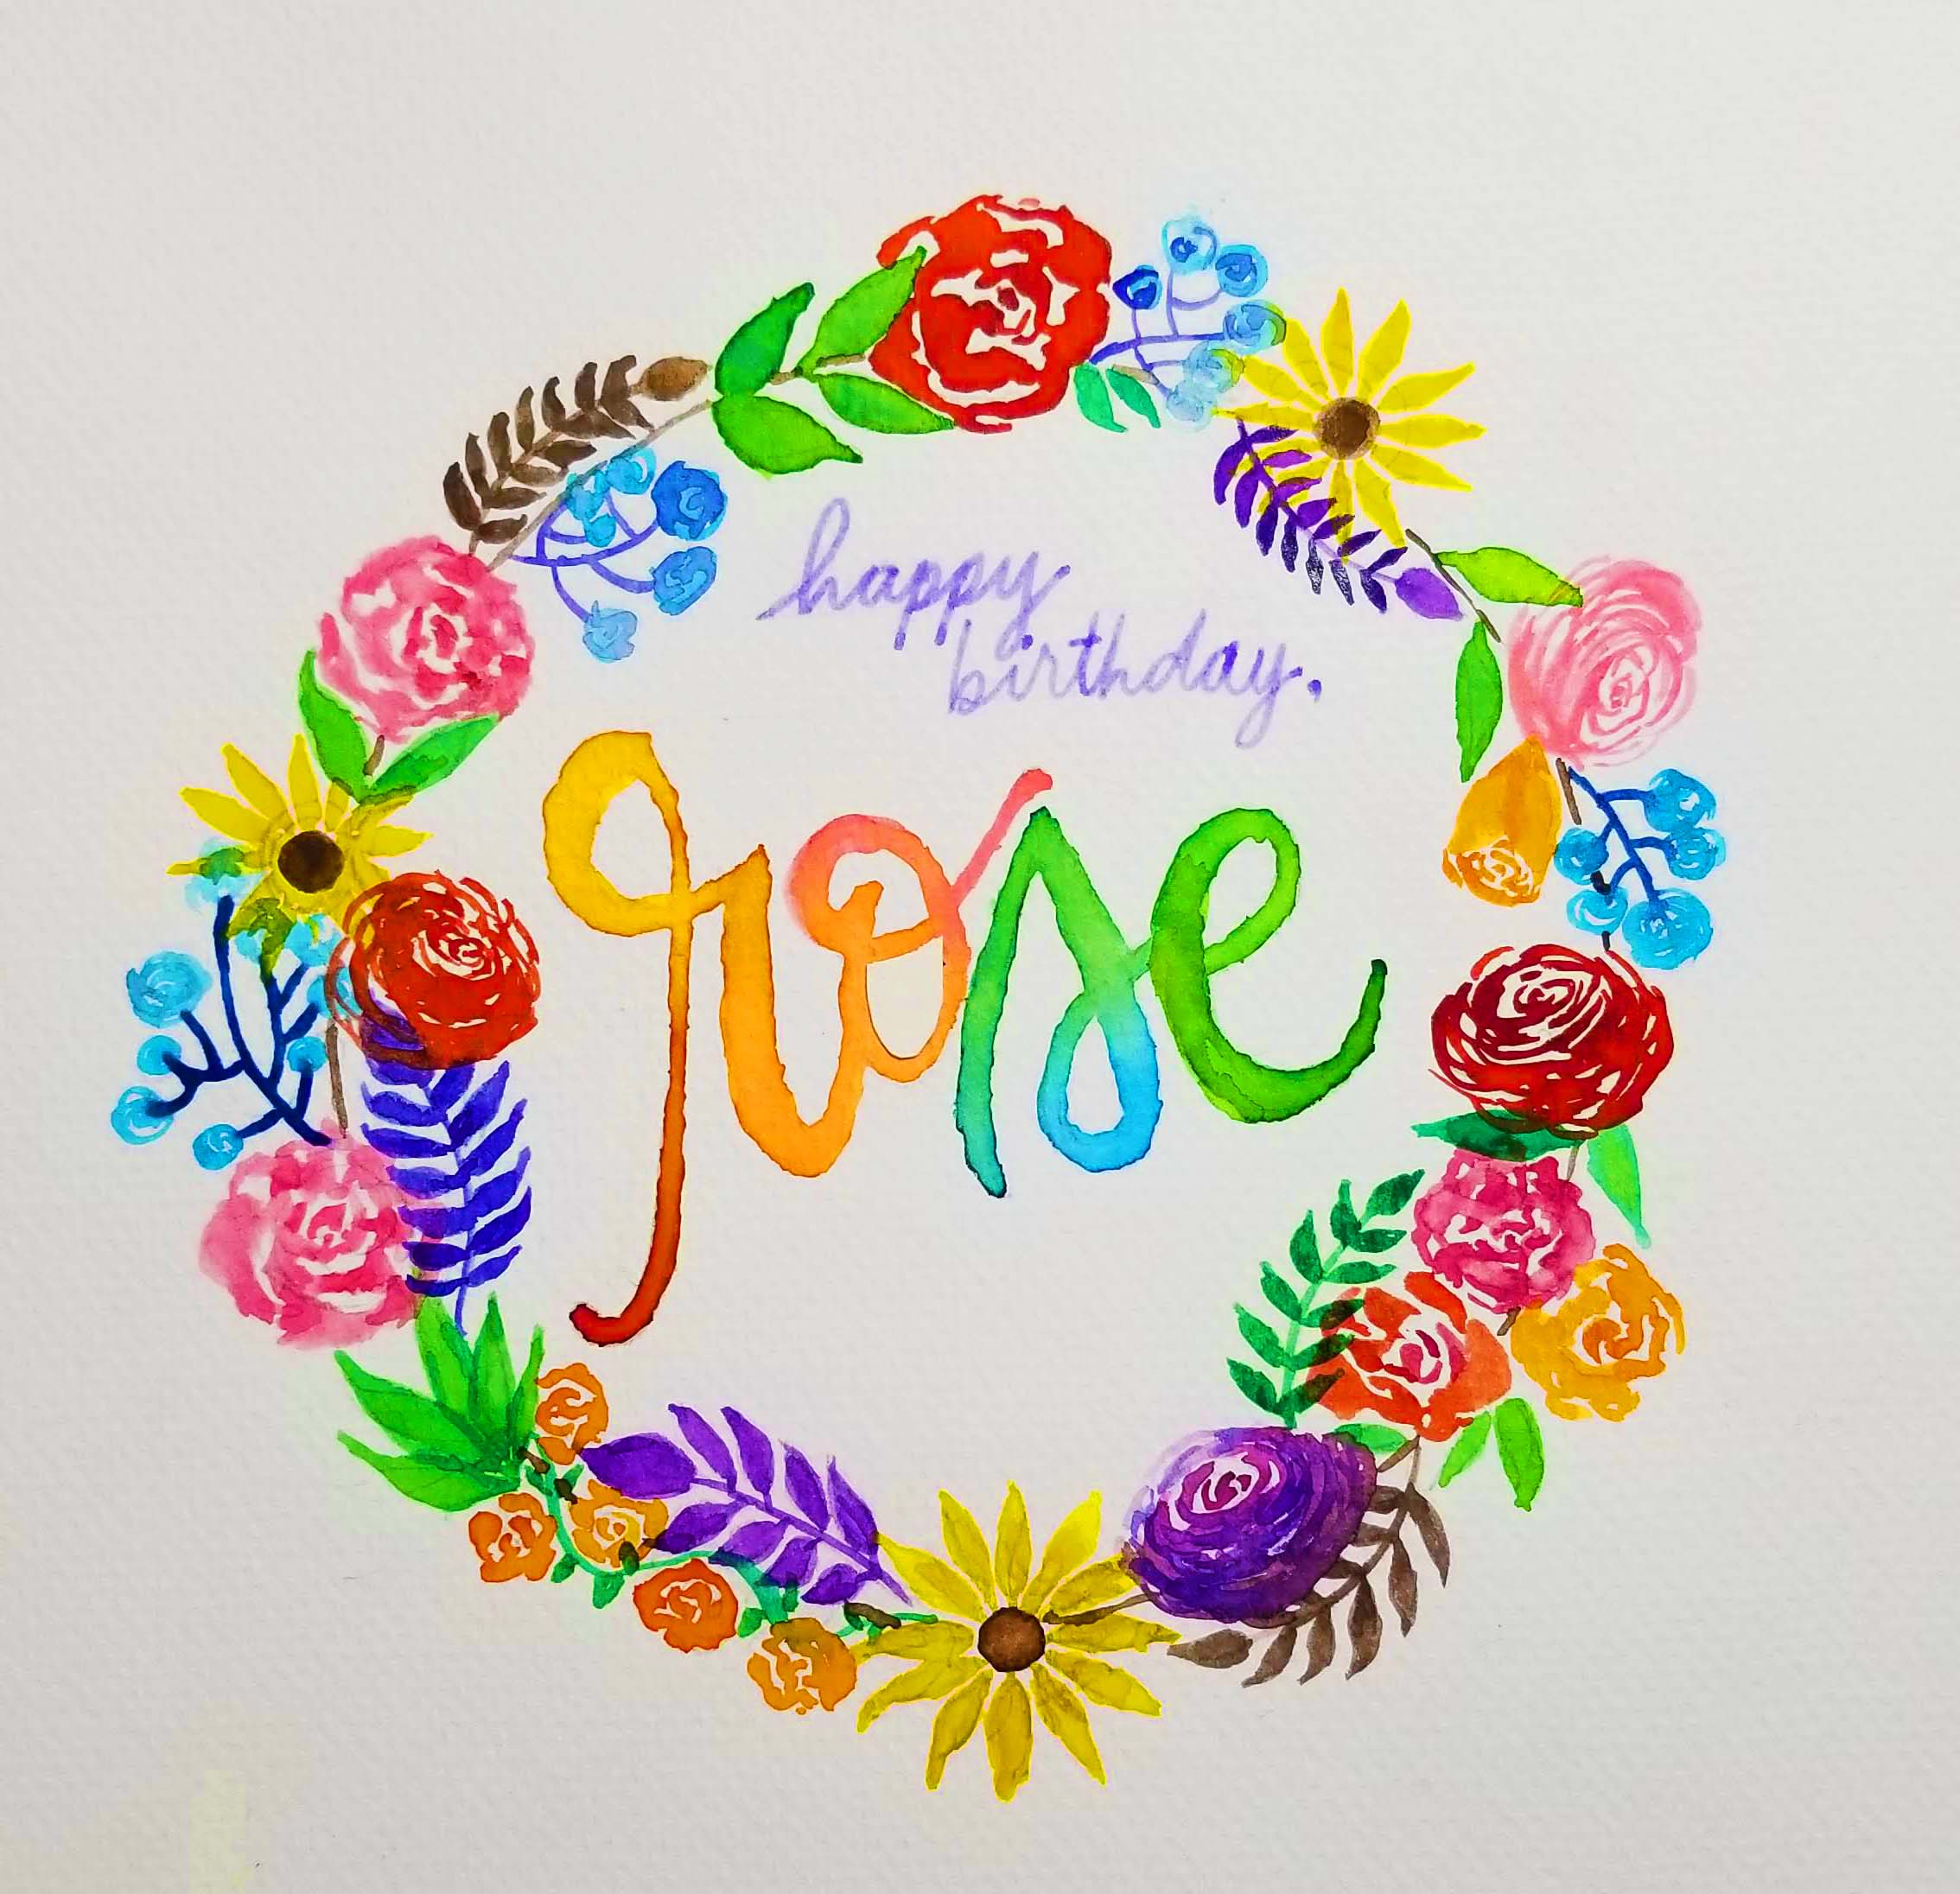 happy
birthday.
rose